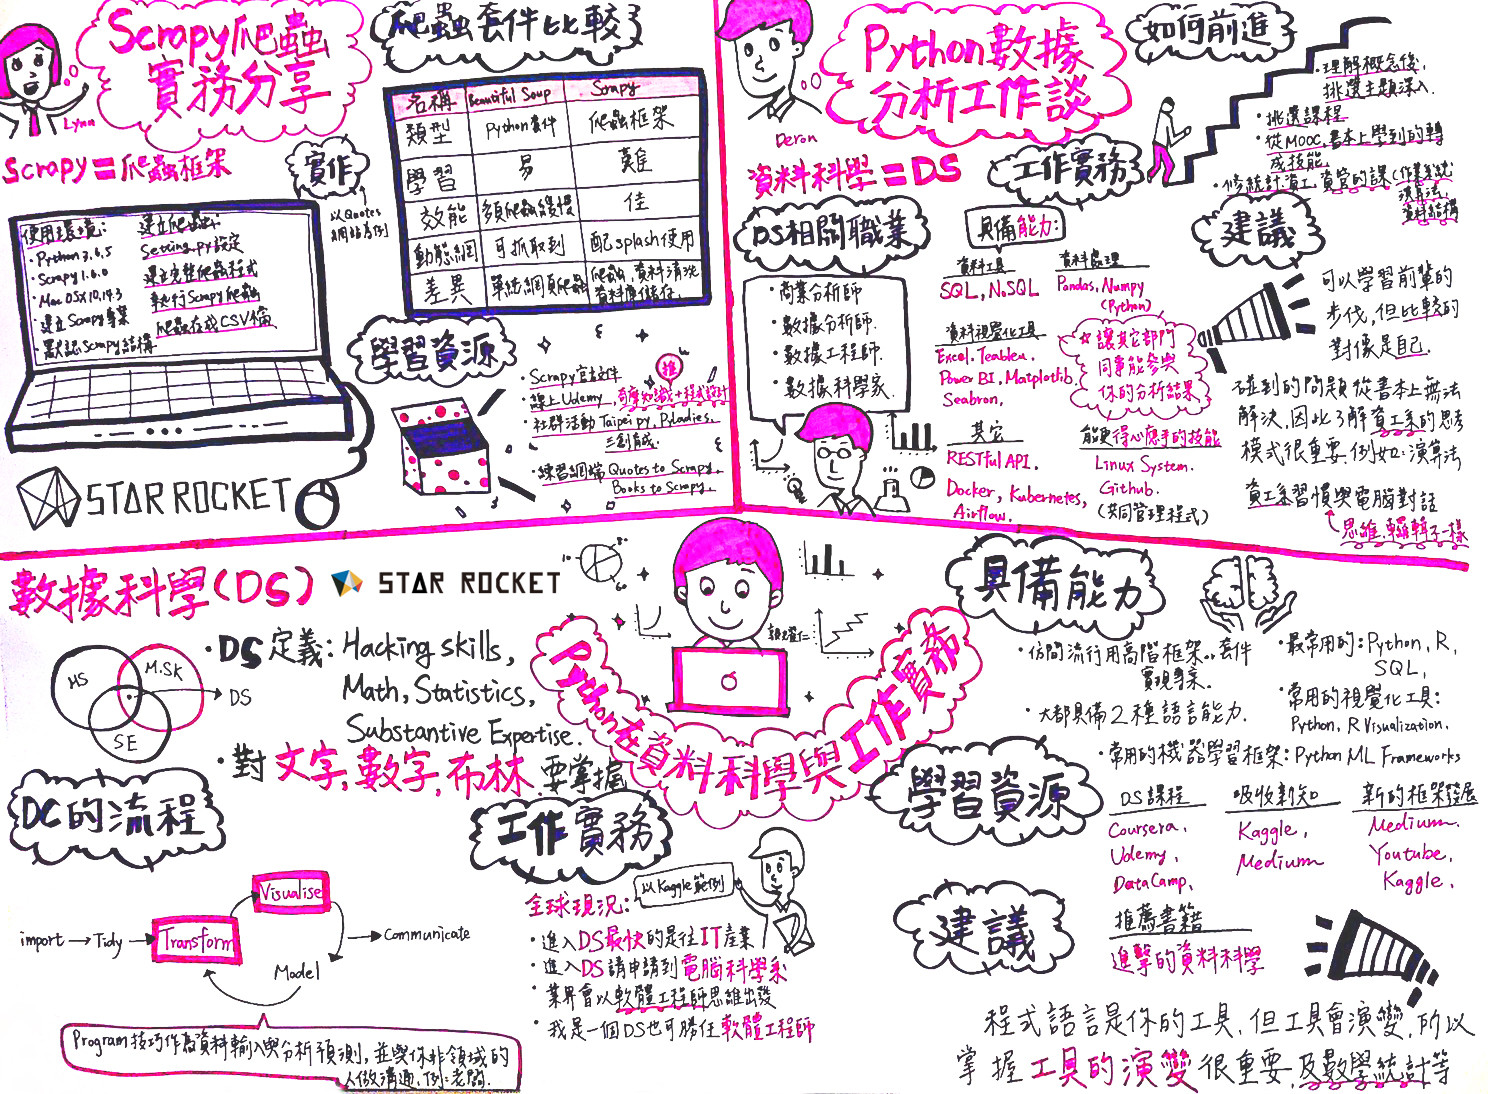 Scrapy爬蟲
實務分享
Lynn
Scrapy=爬蟲框架
實作
以Quotes
網站為例
使用環境:
・Python 3.6.5
・Scrapy 1.6.0
・Mac OSX 10.14.3
・建立Scrapy專案
・默認Scrapy結構
建立爬蟲:
Setting.py設定
建立完整爬蟲程式
執行Scrapy爬蟲
爬蟲存成CSV檔
STAR ROCKET
爬蟲套件比較
名稱 Beautiful Soup Scrapy
類型 Python套件 爬蟲框架
學習 易 難
效能 多爬蟲緩慢 佳
動態網 可抓取到 配splash使用
差異 單純網頁爬蟲 爬蟲,資料清洗
資料庫儲存.
學習資源
・Scrapy官方文件
推
・線上Udemy, 奇摩知識+程式設計
・社群活動 Taipei py, Pyladies,
三創育成.
・練習網站 Quotes to Scrapy,
Books to Scrapy.
Python數據
分析工作談
Deron
資料科學=DS
DS相關職業
・商業分析師
・數據分析師.
・數據工程師.
・數據科學家.
工作實務
具備能力:
資料工具
SQL, NoSQL
資料處理
Pandas, Numpy
(Python)
資料視覺化工具
Excel. Teableu.
Power BI, Matplotlib.
Seabron.
☆讓其它部門
同事能參與
你的分析結果
其它
RESTful API.
Docker, Kubernetes,
Airflow.
能更得心應手的技能
Linux System.
Github.
(共同管理程式)
如何前進
・理解概念後,
挑選主題深入.
・挑選課程
・從MOOC,書本上學到的轉
成技能.
・修統計.資工.資管的課(作業系統
演算法,
資料結構
建議
可以學習前輩的
步伐,但比較的
對像是自己.
碰到的問題從書本上無法
解決,因此了解資工系的思考
模式很重要.例如:演算法
資工系習慣與電腦對話
思維.邏輯不一樣
數據科學(DS)
STAR ROCKET
HS
M.SK
DS
SE
・DS定義: Hacking skills,
Math, Statistics,
Substantive Expertise.
・對文字,數字,布林.要掌握
Python在資料科學與工作實務
DC的流程
import→Tidy→Transform
Visualise
Model
Communicate
Program技巧作為資料輸入與分析預測,並與你非領域的
人做溝通,例:老闆.
工作實務
以Kaggle範例
全球現況:
・進入DS最快的是往IT產業
・進入DS請申請到電腦科學系
・業界會以軟體工程師思維出發
・我是一個DS也可勝任軟體工程師
具備能力
・仿間流行用高階框架..套件
實現專案.
・大都具備2種語言能力.
・最常用的:Python, R,
SQL,
・常用的視覺化工具:
Python, R Visualization.
・常用的機器學習框架:Python ML Frameworks
學習資源
DS課程
Coursera,
Udemy,
DataCamp,
吸收新知
Kaggle,
Medium
新的框架發展
Medium.
Youtube,
Kaggle,
推薦書籍
進擊的資料科學
建議
程式語言是你的工具,但工具會演變,所以
掌握工具的演變很重要,及數學統計等